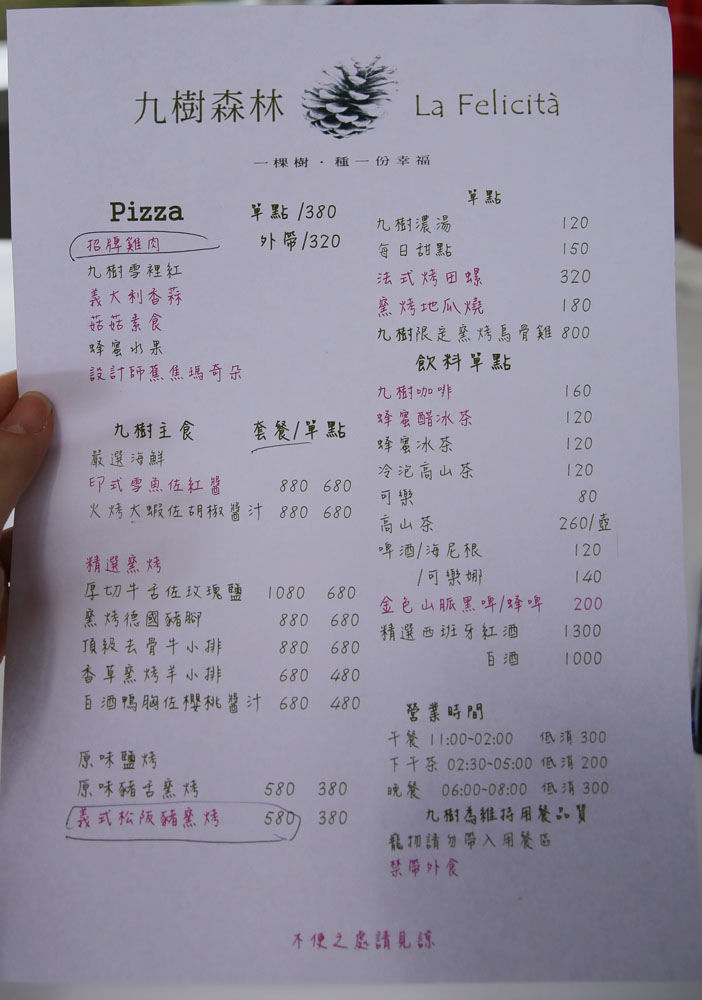 九樹森林 La Felicità
一棵樹·種一份幸福
Pizza 單點 /380
招牌雞肉 外帶/320
九樹雪裡紅
義大利香蒜
菇菇素食
蜂蜜水果
設計師蕉焦瑪奇朵
九樹主食 套餐/單點
嚴選海鮮
印式雪魚佐紅醬 880 680
火烤大蝦佐胡椒醬汁 880 680
精選窯烤
厚切牛舌佐玫瑰鹽 1080 680
窯烤德國豬腳 880 680
頂級去骨牛小排 880 680
香草窯烤羊小排 680 480
白酒鴨胸佐櫻桃醬汁 680 480
原味鹽烤
原味豬舌窯烤 580 380
義式松阪豬窯烤 580 380
單點
九樹濃湯 120
每日甜點 150
法式烤田螺 320
窯烤地瓜燒 180
九樹限定窯烤烏骨雞 800
飲料單點
九樹咖啡 160
蜂蜜醋冰茶 120
蜂蜜冰茶 120
冷泡高山茶 120
可樂 80
高山茶 260/壺
啤酒/海尼根 120
/可樂娜 140
金色山脈黑啤/蜂啤 200
精選西班牙紅酒 1300
白酒 1000
營業時間
午餐 11:00~02:00 低消 300
下午茶 02:30~05:00 低消 200
晚餐 06:00~08:00 低消 300
九樹為維持用餐品質
寵物請勿帶入用餐區
禁帶外食
不便之處請見諒